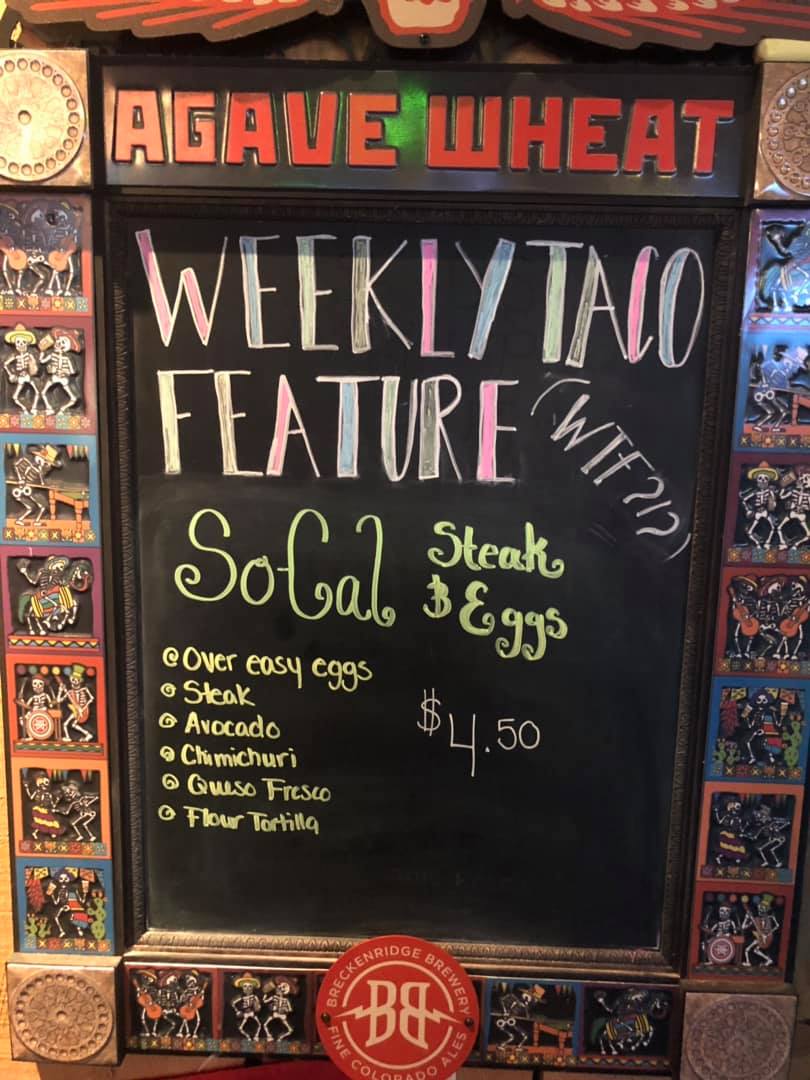 AGAVE WHEAT
WEEKLY TACO
FEATURE (WTF?!?)
So-Cal Steak
& Eggs
Over easy eggs
Steak
Avocado
Chimichuri
Queso Fresco
Flour Tortilla
$4.50
BRECKENRIDGE BREWERY
BB
FINE COLORADO ALES